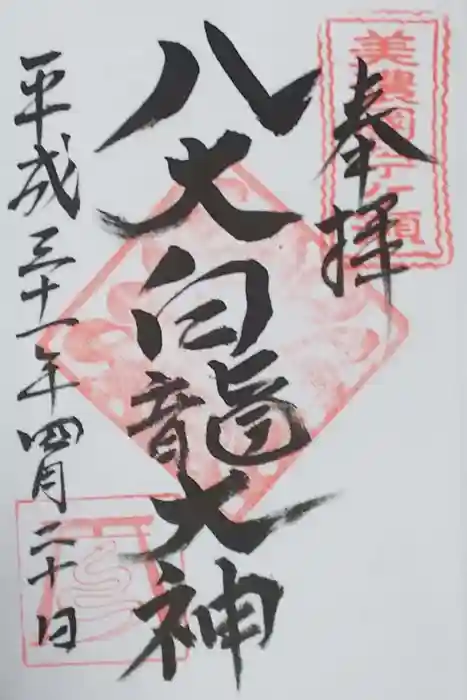 奉拝
八大白龍大神
平成三十一年四月二十日